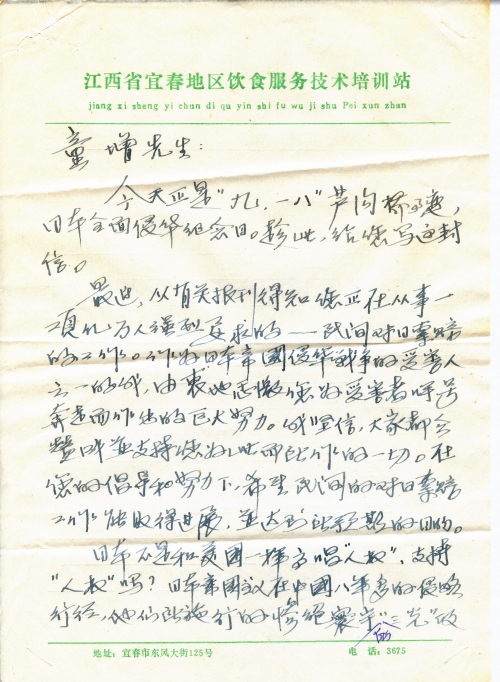 江西省宜春地区饮食服务技术培训站
jiang xi sheng yi chun di qu yin shi fu wu ji shu Pei xun zhan
童增先生：
今天正是"九.一八"芦沟桥事变，
日本全面侵华纪念日。趁此，给您写这封
信。
最近，从有关报刊得知您正在从事一
项亿万人强烈要求的——民间对日索赔
的工作。作为日本帝國侵华战争的受害人
之一的我，由衷地感激您为受害者呼号
奔走而作出的巨大努力。我坚信，大家都会
赞成并支持您为此而所作的一切。在
您的倡导和努力下，希望民间的对日索赔
工作能取得进展，并达到所预期的目的。
日本不是和美國一样高唱"人权"，支持
"人权"吗？日本帝國主义在中國八年多的侵略
行经，他们所施行的惨绝寰宇"三光"政
地址：宜春市东风大街125号
电 话：3675